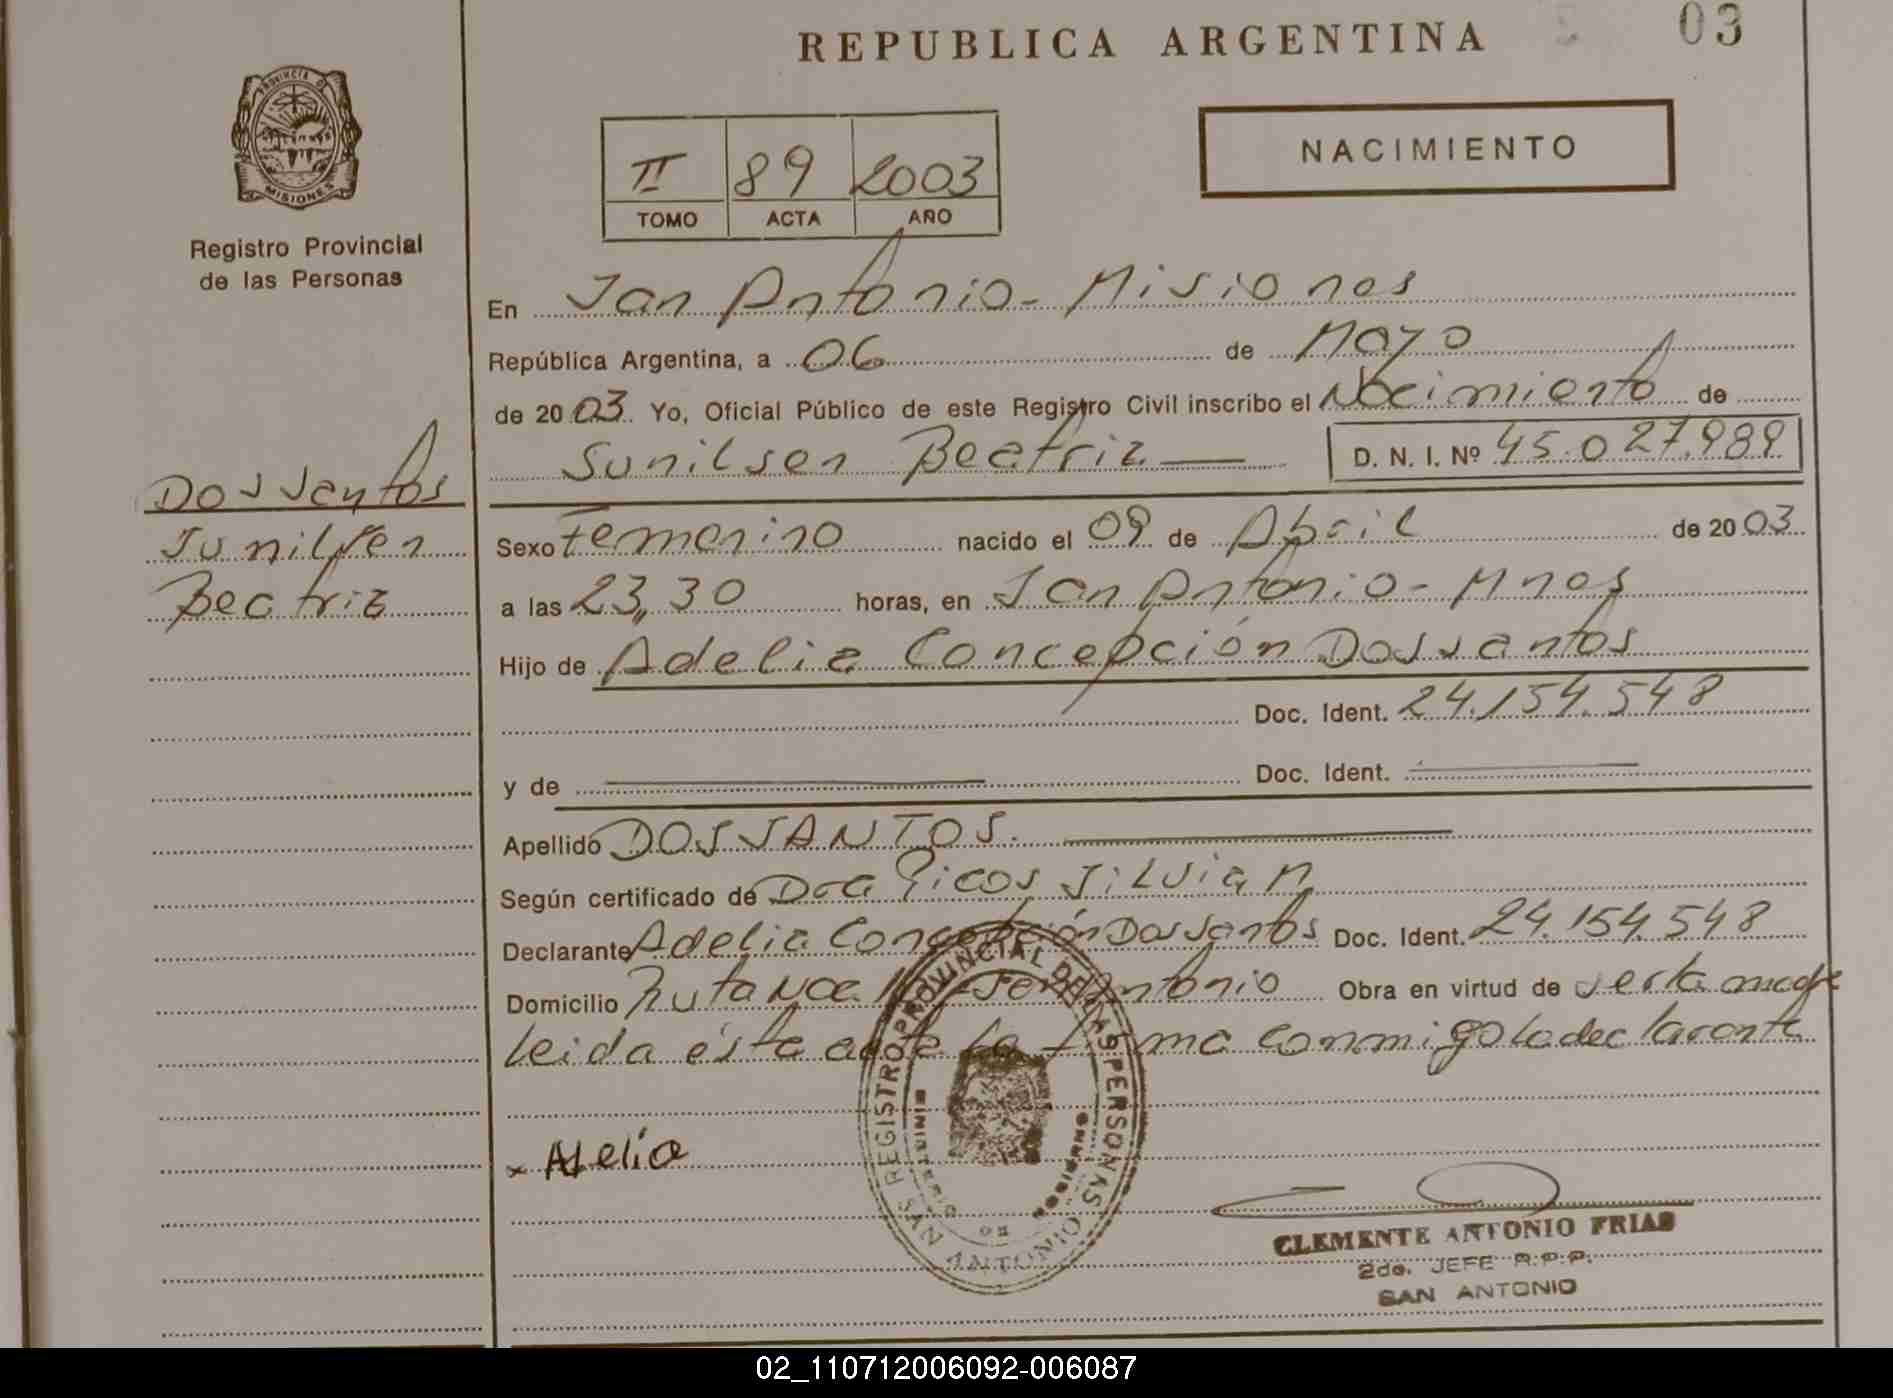 REPUBLICA ARGENTINA
03
PROVINCIA DE
MISIONES
Registro Provincial
de las Personas
II 89 2003
TOMO ACTA AÑO
NACIMIENTO
En San Antonio - Misiones
República Argentina, a 06 de Mayo
de 2003. Yo, Oficial Público de este Registro Civil inscribo el Nacimiento de
Sunilsen Beatriz D. N. I. Nº 45.027.989
Dossantos
Sunilsen
Beatriz
Sexo Femenino nacido el 09 de Abril de 2003
a las 23,,30 horas, en San Antonio - Mnes
Hijo de Adelia Concepción Dossantos
Doc. Ident. 24.154.548
y de Doc. Ident.
Apellido DOSSANTOS.
Según certificado de Dra Picos Silvia M
Declarante Adelia Concepción Dossantos Doc. Ident. 24.154.548
Domicilio Ruta Nac San Antonio Obra en virtud de ser la madre
leida ésta acta la firma conmigo la declarante
Adelia
REGISTRO PROVINCIAL DE LAS PERSONAS
MINISTERIO DE
SAN ANTONIO
CLEMENTE ANTONIO FRIAS
2do. JEFE R.P.P.
SAN ANTONIO
02_110712006092-006087